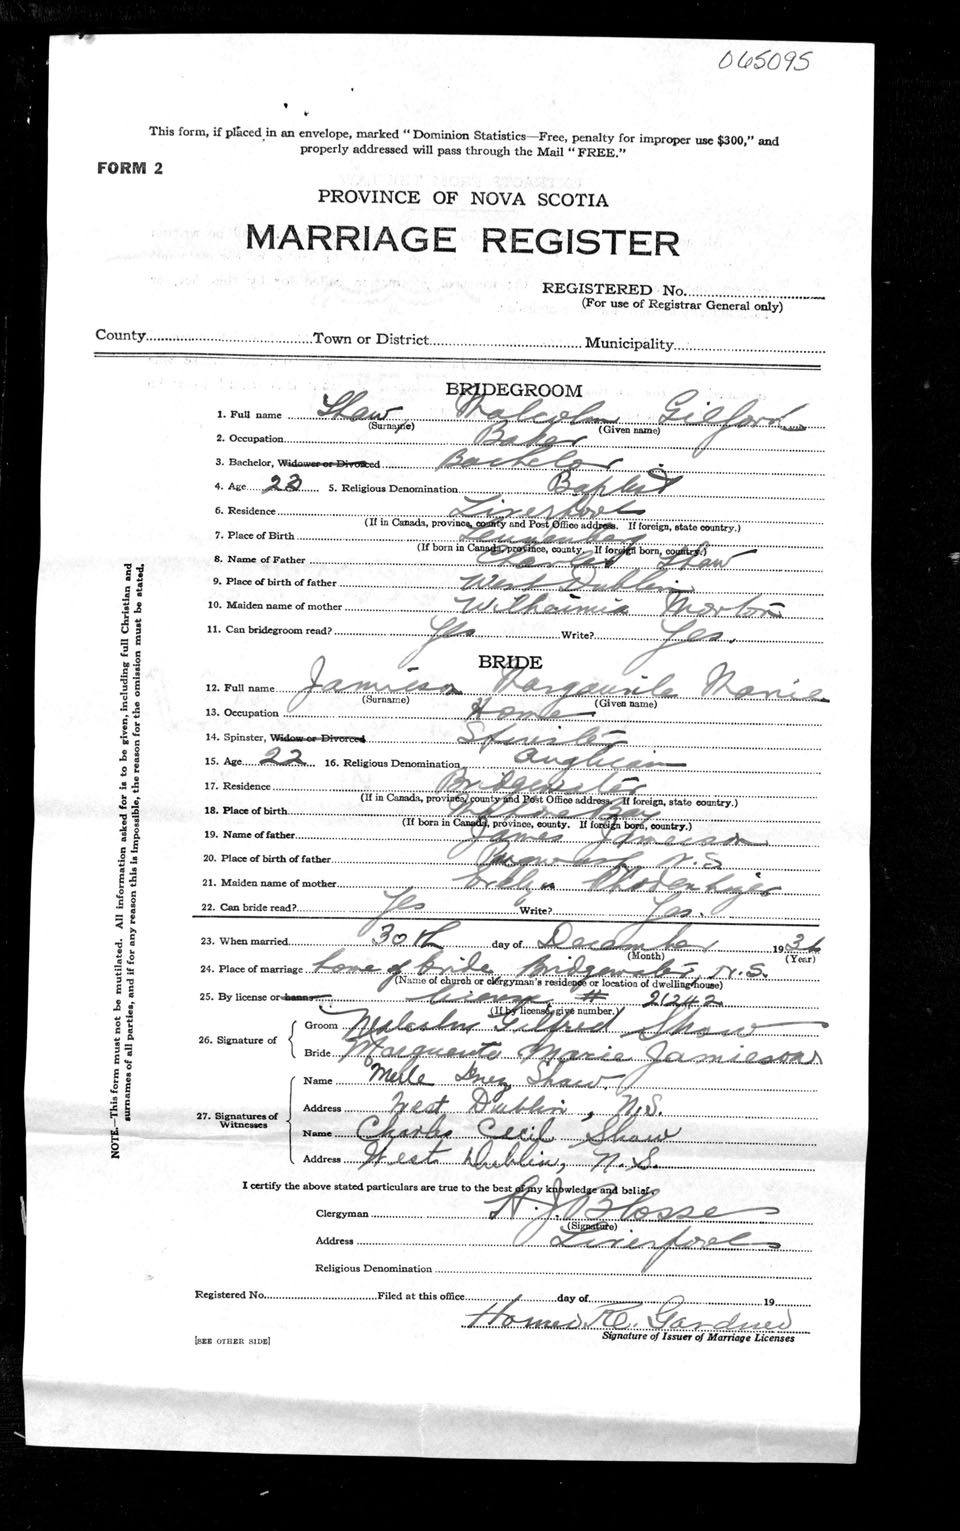 065095
This form, if placed in an envelope, marked "Dominion Statistics—Free, penalty for improper use $300," and
properly addressed will pass through the Mail "FREE."
FORM 2
PROVINCE OF NOVA SCOTIA
MARRIAGE REGISTER
REGISTERED No.
(For use of Registrar General only)
County Town or District Municipality
BRIDEGROOM
1. Full name Shaw Malcolm Gilford
(Surname) (Given name)
2. Occupation Baker
3. Bachelor, Widower or Divorced Bachelor
4. Age 23 5. Religious Denomination Baptist
6. Residence Liverpool
(If in Canada, province, county and Post Office address. If foreign, state country.)
7. Place of Birth Lunenburg
(If born in Canada, province, county. If foreign born, country.)
8. Name of Father Charles Shaw
9. Place of birth of father West Dublin
10. Maiden name of mother Wilhaimia Morton
11. Can bridegroom read? Yes Write? Yes.
BRIDE
12. Full name Jamieson Marguerite Marie
(Surname) (Given name)
13. Occupation Home
14. Spinster, Widow or Divorced Spinster
15. Age 22 16. Religious Denomination Anglican
17. Residence Bridgewater
(If in Canada, province, county and Post Office address. If foreign, state country.)
18. Place of birth
(If born in Canada, province, county. If foreign born, country.)
19. Name of father James Jamieson
20. Place of birth of father Pugwash N.S
21. Maiden name of mother Rhodenhizer
22. Can bride read? Yes Write? Yes.
23. When married 30th day of December 1936
(Month) (Year)
24. Place of marriage home of bride Bridgewater, N.S.
(Name of church or clergyman's residence or location of dwelling house)
25. By license or banns license # 21242
(If by license, give number.)
26. Signature of
Groom Malcolm Gilford Shaw
Bride Marguerite Marie Jamieson
27. Signatures of Witnesses
Name Melle Inez Shaw.
Address West Dublin, N.S.
Name Charles Cecil Shaw
Address West Dublin, N.S.
I certify the above stated particulars are true to the best of my knowledge and belief.
Clergyman H. J. Blosse
(Signature)
Address Liverpool
Religious Denomination
Registered No. Filed at this office day of 19
Homer K. Gardner
Signature of Issuer of Marriage Licenses
[SEE OTHER SIDE]
NOTE.—This form must not be mutilated. All information asked for is to be given, including full Christian and
surnames of all parties, and if for any reason this is impossible, the reason for the omission must be stated.